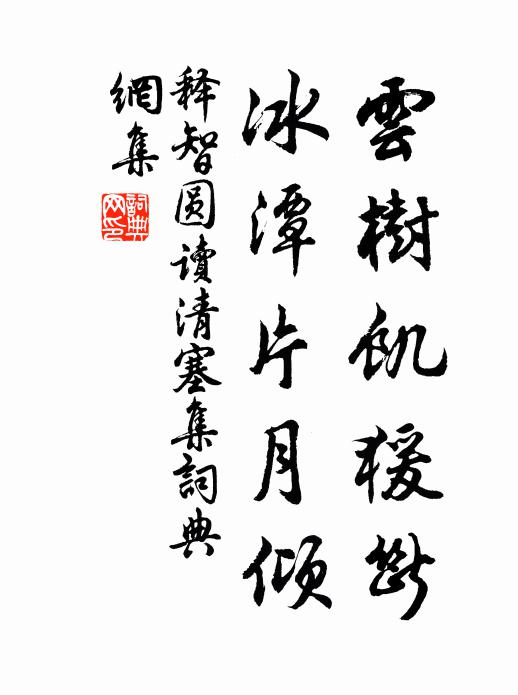 雲樹飢猨斷
冰潭片月傾
释智圆讀清塞集詞典
網集
詞典
网印